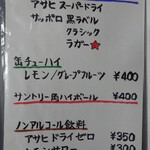 アサヒ スーパードライ
サッポロ 黒ラベル
クラシック
ラガー★
缶チューハイ
レモン/グレープフルーツ ¥400
サントリー角ハイボール ¥400
ノンアルコール飲料
アサヒ ドライゼロ ¥350
レモンサワー ¥300